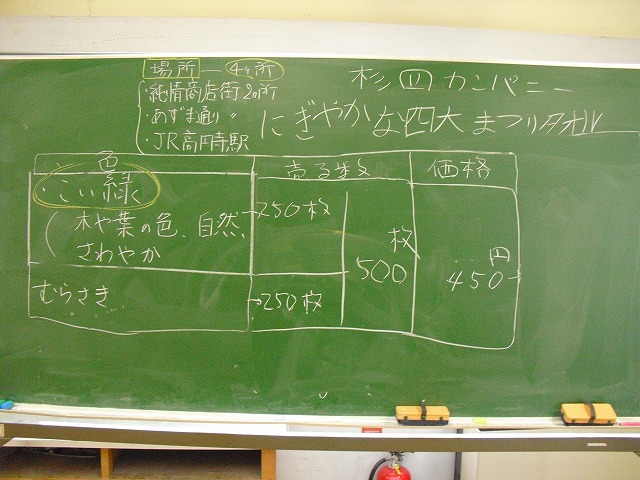 場所 — 4ヶ所
・純情商店街 2ヶ所
・あずま通り 〃
・JR高円寺駅
杉四カンパニー
にぎやかな四大まつりタオル
色
売る数
価格
・こい緑
(木や葉の色、自然、
さわやか
→250枚
500枚
450円
むらさき
→250枚